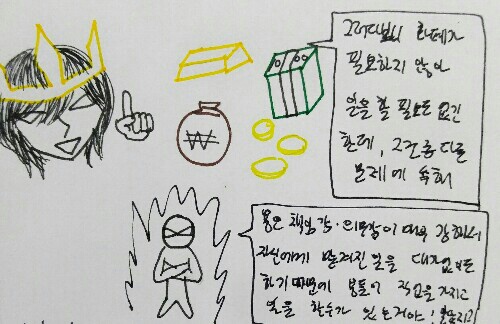 필요하지 않아
일을 할 필요도 없긴
한데, 그건 좀 다른
문제에 속해
₩
용은 책임감·의무감이 매우 강해서
자신에게 맡겨진 일을 대가없이도
하기 때문에 용들이 직업을 가지고
일을 할 수가 있는거야!